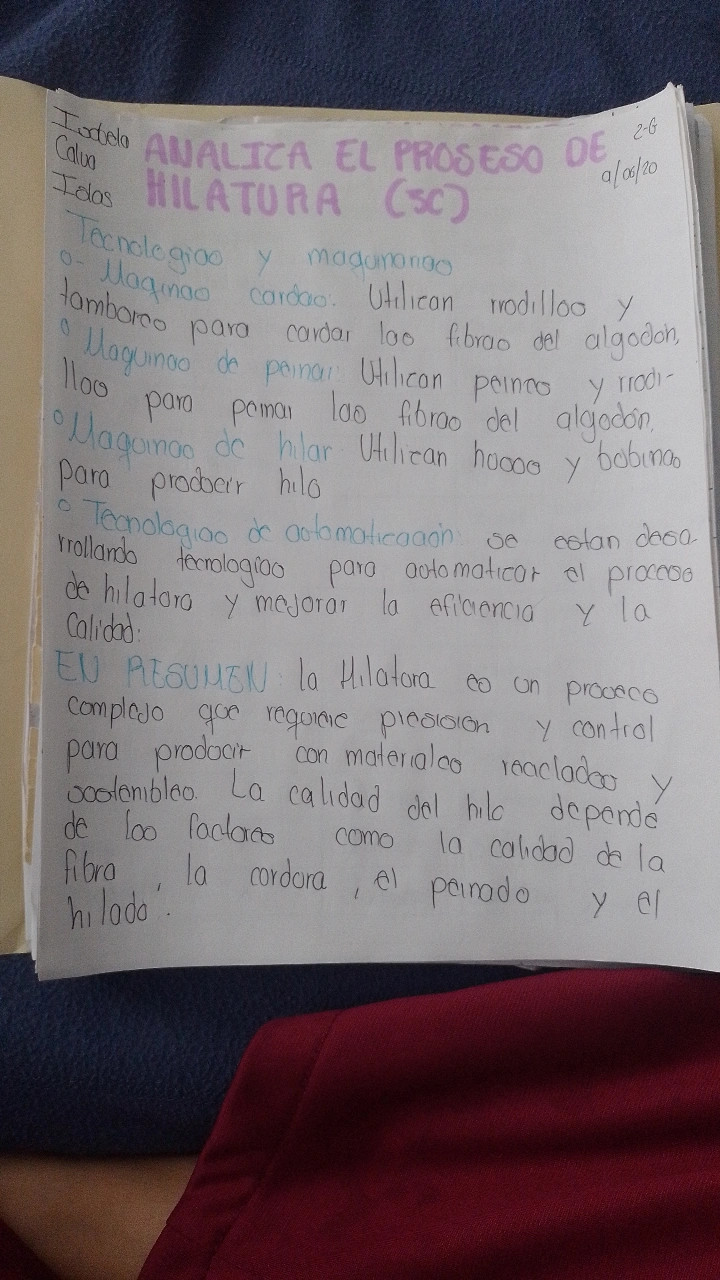 Isabela
Calva
Islas
2-G
9/06/20
ANALICA EL PROSESO DE
HILATURA (SC)
Tecnologias y maquinarias
o- Maqinas cardas: Utilican rrodillos y
tambores para cardar las fibras del algodon,
o Maquinas de peinar: Utilican peines y rrodi-
llos para peinar las fibras del algodón.
o Maquinas de hilar Utilican husos y bobinas
para producir hilo
o Tecnologias de automaticacion: se estan desa-
rrollando tecnologias para automaticar el proceso
de hilatura y mejorar la eficiencia y la
Calidad:
EN RESUMEN: la Hilatura es un proceco
complejo que requiere presision y control
para producir con materiales reaclados y
sostenibles. La calidad del hilo depende
de los factores como la calidad de la
fibra, la cardara, el peinado y el
hilado.